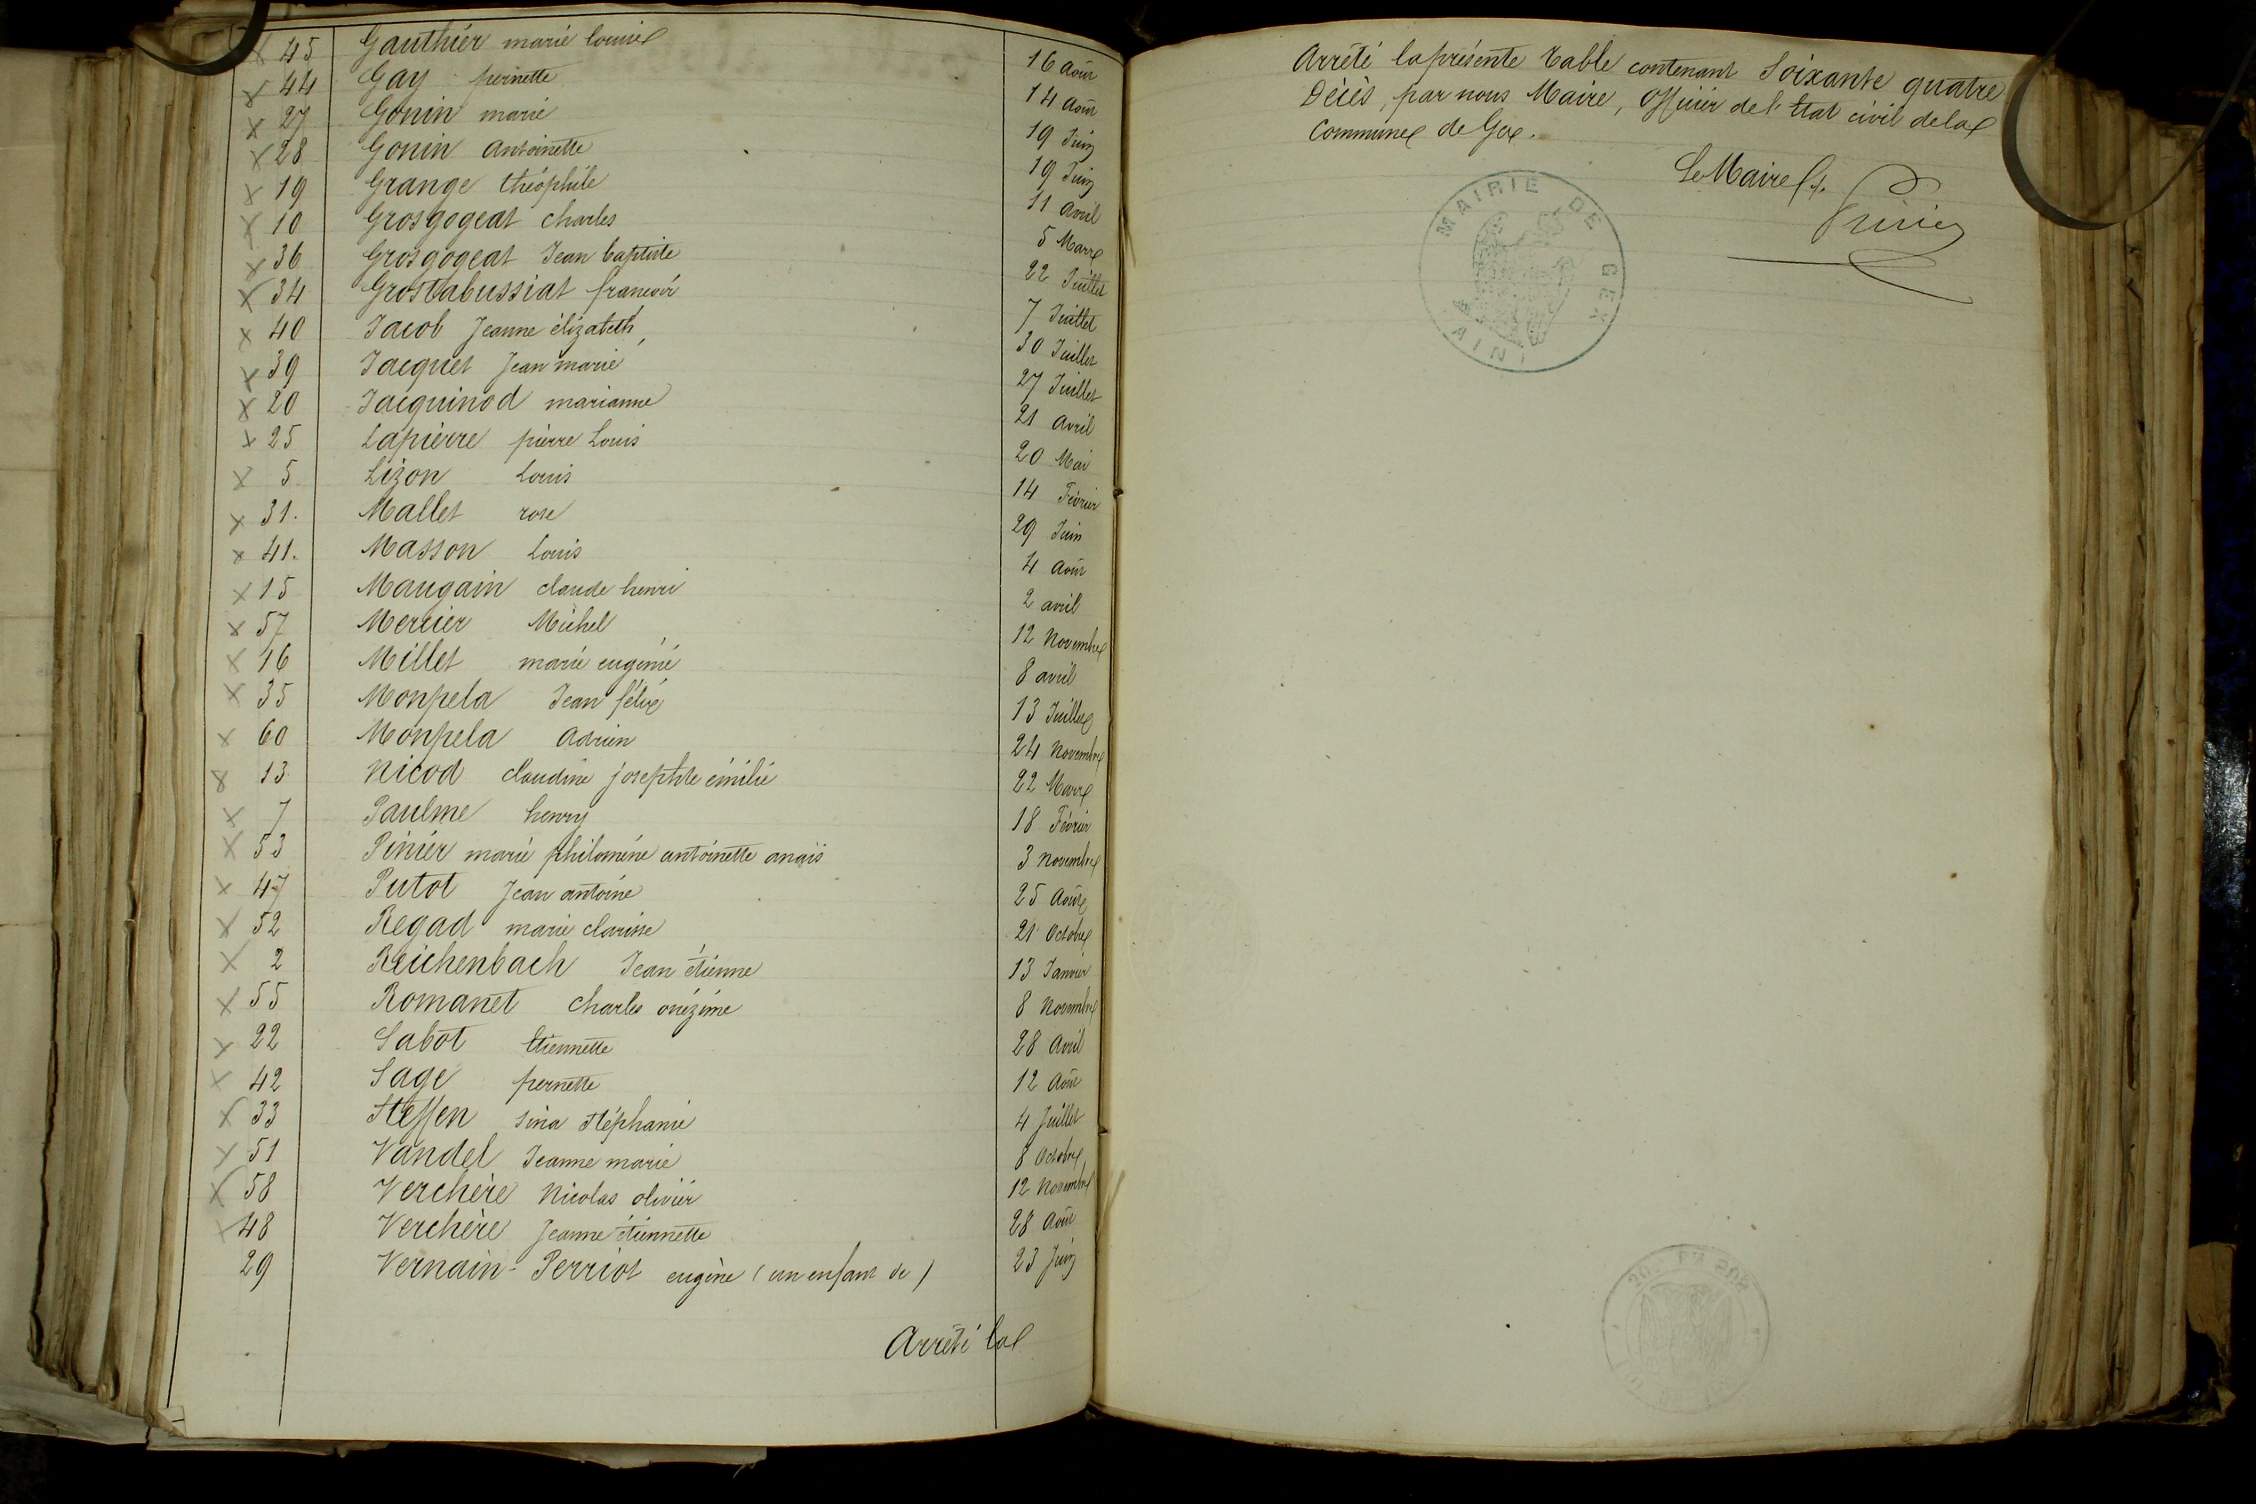 45 Gauthier marie louise 16 août
44 Gay pernette 14 août
27 Gonin marie 19 Juin
28 Gonin antoinette 19 Juin
19 Grange théophile 11 avril
10 Grosgogeat charles 5 Mars
36 Grosgogeat Jean baptiste 22 Juillet
34 Grostabussiat françois 7 Juillet
40 Jacob Jeanne élizabeth 30 Juillet
39 Jacquet Jean marie 27 Juillet
20 Jacquinod marianne 21 avril
25 Lapierre pierre Louis 20 Mai
5 Lizon Louis 14 Février
31. Mallet rose 29 Juin
41. Masson Louis 4 août
15 Maugain claude henri 2 avril
57 Mercier Michel 12 Novembre
16 Millet marie eugénie 8 avril
35 Monpela Jean félix 13 Juillet
60 Monpela adrien 24 Novembre
13 Nicod claudine josephte émilie 22 Mars
7 Paulme henry 18 Février
53 Pinier marie philomène antoinette anaïs 3 novembre
47 Putot Jean antoine 25 août
52 Regad marie clarisse 21 Octobre
2 Reichenbach Jean étienne 13 Janvier
55 Romanet Charles onézime 8 Novembre
22 Sabot Etiennette 28 avril
42 Sage pernette 12 août
33 Steffen Stéphanie 4 Juillet
51 Vandel Jeanne marie 8 Octobre
58 Verchère Nicolas olivier 12 Novembre
48 Verchère Jeanne étiennette 28 août
29 Vernain-Perriot eugène (un enfant de) 23 Juin
Arrêté la
Arrêté la présente table contenant Soixante quatre
Décès, par nous Maire, Officier de l'Etat civil de la
Commune de Gex.
Le Maire
MAIRIE DE GEX
(AIN)